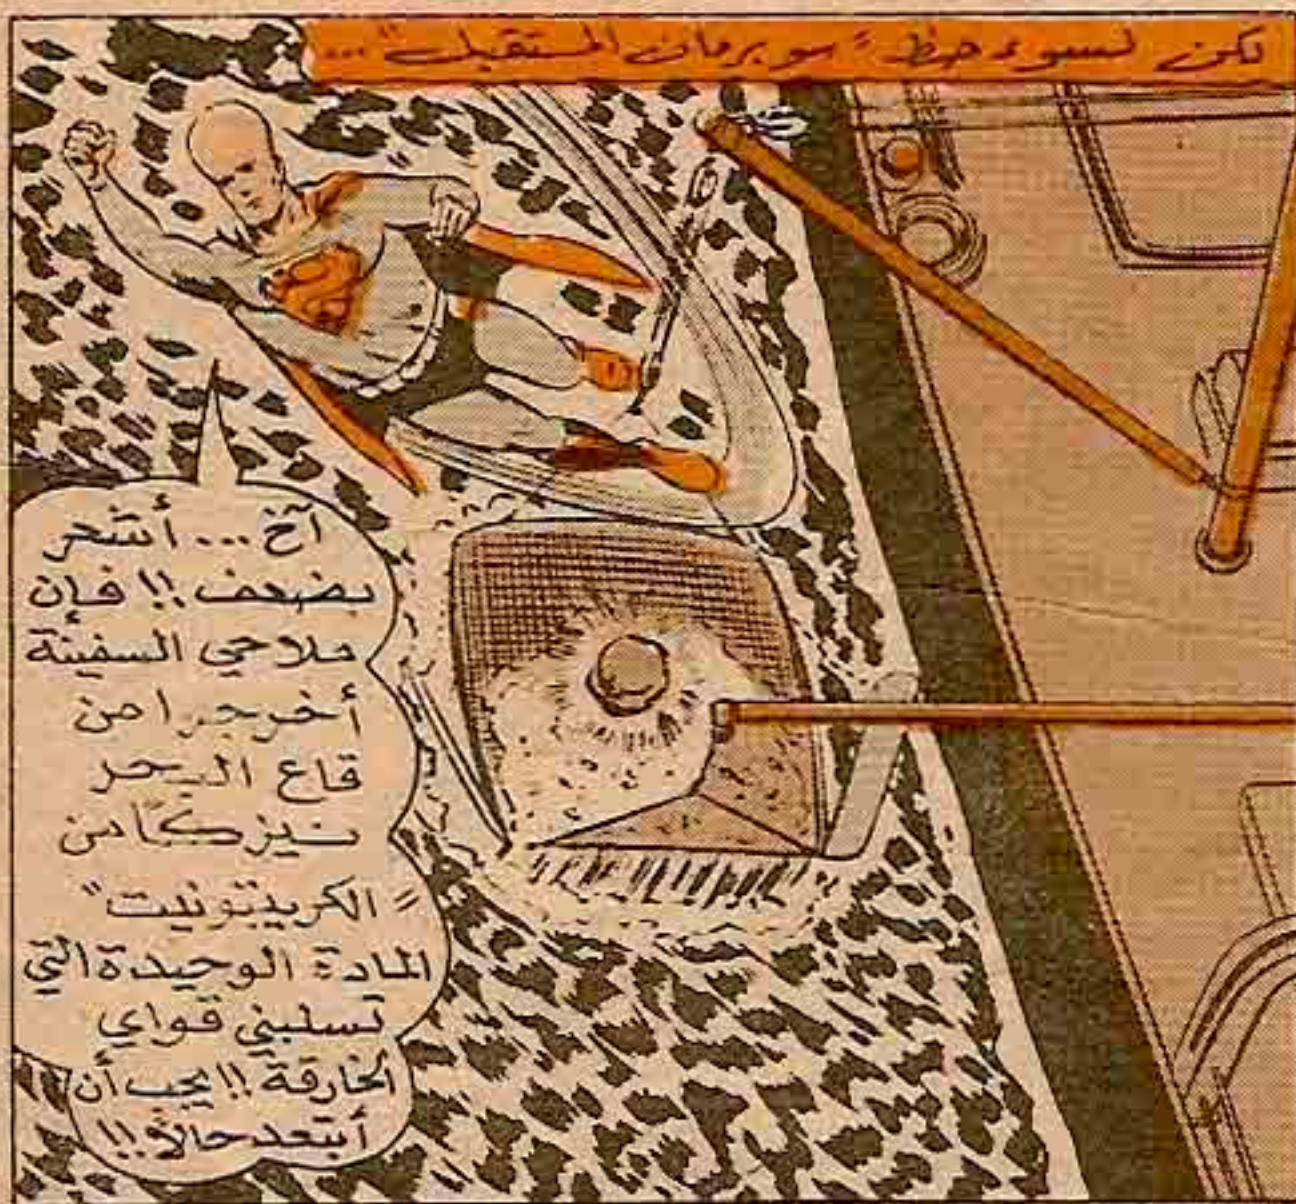 لكن لسوء حظ "سوبرمان المستقبل"...
آخ... أشعر
بضعف!! فإن
ملاحي السفينة
أخرجوا من
قاع البحر
نيزكًا من
"الكريبتونيت"
المادة الوحيدة التي
تسلبني قواي
الخارقة!! يجب أن
أبتعد حالاً!!